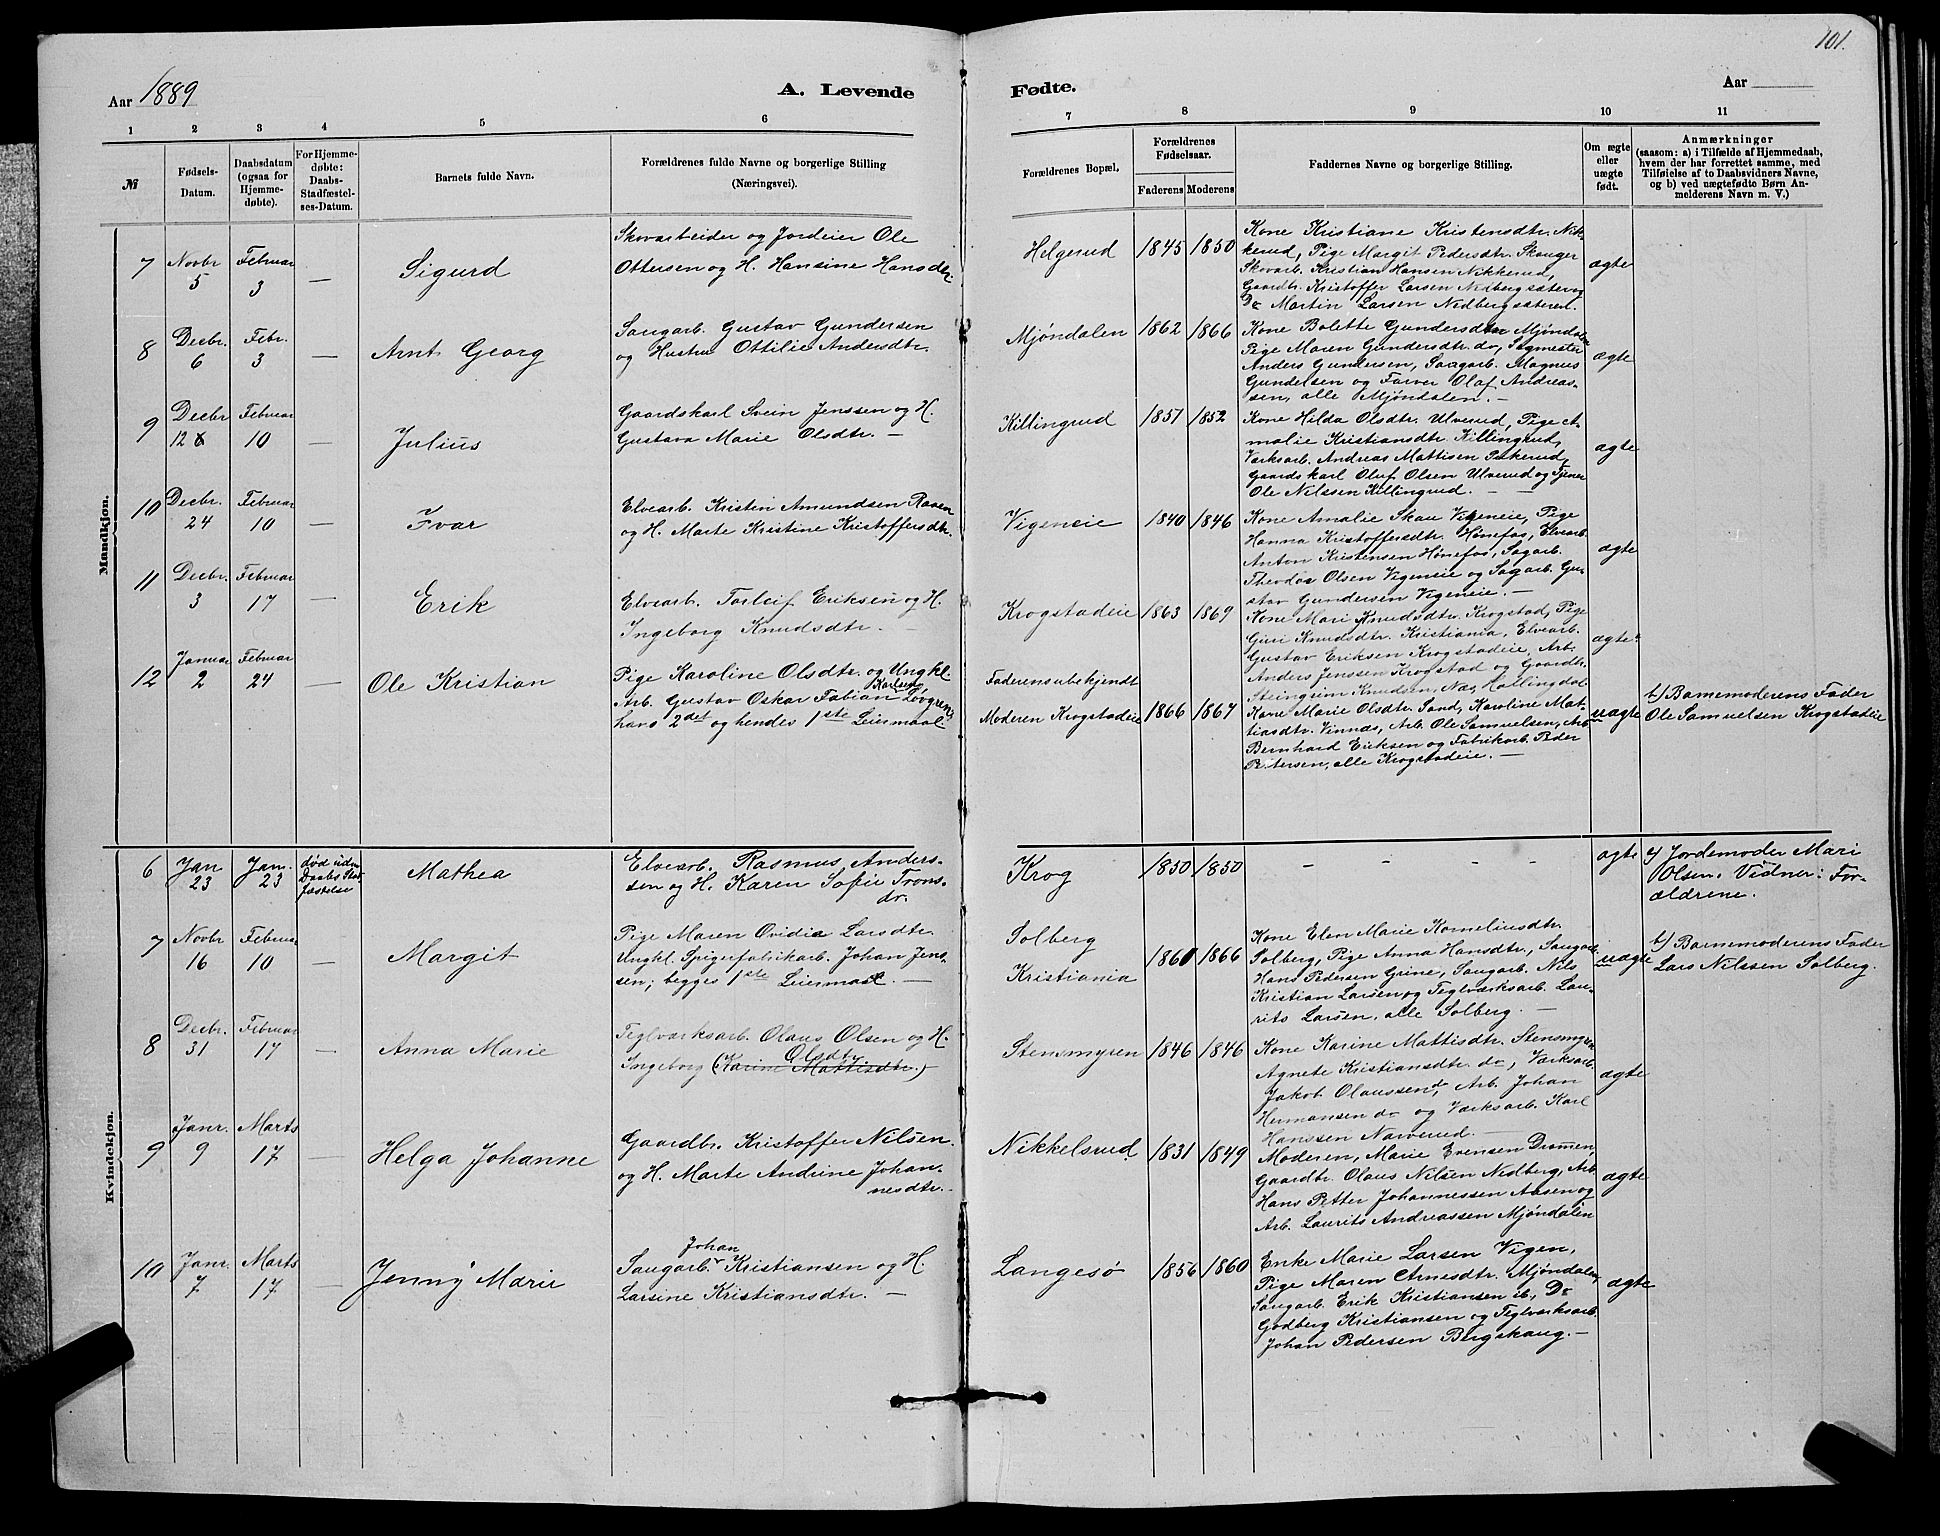 101.
Aar 1889
A. Levende
Fødte.
Aar
1 2 3 4 5 6 7 8 9 10 11
№
Fødsels-
Datum.
Daabsdatum
(ogsaa for
Hjemme-
døbte).
For Hjemme-
døbte:
Daabs-
Stadfæstel-
ses-Datum.
Barnets fulde Navn.
Forældrenes fulde Navne og borgerlige Stilling
(Næringsvei).
Forældrenes Bopæl,
Forældrenes
Fødselsaar.
Faderens Moderens
Faddernes Navne og borgerlig Stilling.
Om ægte
eller
uægte
født.
Anmærkninger
(saasom: a) i Tilfælde af Hjemmedaab,
hvem der har forrettet samme, med
Tilføielse af to Daabsvidners Navne,
og b) ved uægtefødte Børn An-
melderens Navn m. V.)
Mandkjøn.
7
Novbr
5
Februar
3
—
Sigurd
Skovarbeider og Jordeier Ole
Ottersen og H. Hansine Hansdtr.
Helgerud 1845 1850
Kone Kristiane Kristensdtr. Nik-
kerud, Pige Margit Pedersdtr. Skauger
Skovarb. Kristian Hansen Nikkerud,
Gaardbr. Kristoffer Larsen Nedbergsæter og
Do Martin Larsen Nedbergsæteren.
ægte
8
Decbr.
6
Febr.
3
—
Arnt Georg
Saugarb. Gustav Gundersen
og Hustru Ottilie Andersdtr.
Mjøndalen 1862 1866
Kone Bolette Gundersdtr Mjøndalen
Pige Maren Gundersdtr. do, Sagmester
Anders Gundersen, Saugarb. Magnus
Gundersen og Farver Olaf Andreas-
sen, alle Mjøndalen. —
ægte
9
Decbr
12
Februar
10
—
Julius
Gaardskarl Svein Jenssen og H.
Gustava Marie Olsdtr. —
Killingrud 1851 1852
Kone Hilda Olsdtr. Ulverud, Pige A-
malie Kristiansdtr. Killingrud,
Værksarb. Andreas Mattisen
Gaardskarl Oluf Olsen Ulverud og Tjener
Ole Nilssen Killingrud. — —
ægte
10
Decbr.
24
Februar
10
—
Ivar
Elvearb. Kristin Amundsen Raaen
og H. Marte Kristine Kristoffersdtr.
Vigeneie 1840 1846
Kone Amalie Skau Vigeneie, Pige
Hanna Kristoffersdtr. Hønefos, Elvearb.
Anton Kristensen Hønefos, Sagarb.
Theodor Olsen Vigeneie og Sagarb. Gu-
stav Gundersen Vigeneie. —
ægte
11
Decbr.
3
Februar
17
—
Erik
Elvearb. Torleif Eriksen og H.
Ingeborg Knudsdtr. —
Krogstadeie 1863 1869
Kone Mari Knudsdtr. Krogstad, Pige
Guri Knudsdtr. Kristiania, Elvearb.
Gustav Eriksen Krogstadeie, Arb.
Anders Jenssen Krogstad og Gaardbr.
Steingrim Knudsen, Næs, Hallingdal
ægte
12
Januar
2
Februar
24
—
Ole Kristian
Pige Karoline Olsdtr. og Ungkl.
Karlsen
Arb. Gustav Oskar Fabian Løvgren;
hans 2det og hendes 1ste Leiermaal
Faderens ubekjendt
Moderen Krogstadeie 1866 1867
Kone Marie Olsdtr. Sand, Karoline Mat-
tiasdtr. Vinnæs, Arb. Ole Samuelsen, Arb.
Bernhard Eriksen og Fabrikarb. Peder
Petersen, alle Krogstadeie. —
uægte
b) Barnemoderens Fader
Ole Samuelsen Krogstadeie
Kvindekjøn.
6
Jan
23
Jan.
23
død uden
Daabs Stad-
fæstelse
Mathea
Elvearb. Rasmus Anders-
sen og H. Karen Sofie Trons-
dr.
Krog 1850 1850
- - - -
ægte
a) Jordemoder Mari
Olsen. Vidner: For-
ældrene.
7
Novbr
16
Februar
10
—
Margit
Pige Maren Ovidia Larsdtr.
Ungkl. Spigerfabrikarb. Johan Jens-
sen; begges 1ste Leiermaal. —
Solberg
Kristiania
1860 1866
Kone Elen Marie Korneliusdtr.
Solberg, Pige Anna Hansdtr., Saugarb.
Hans Pedersen Grine, Saugarb. Nils
Kristian Larsen og Teglværksarb. Lau-
rits Larsen, alle Solberg. —
uægte
b) Barnemoderens Fader
Lars Nilssen Solberg.
8
Decbr.
31
Februar
17
—
Anna Marie
Teglværksarb. Olaus Olsen og H.
Olsdtr
Ingeborg (Karine Mattisdtr.)
Stensmyren 1846 1846
Kone Karine Mattisdtr. Stensmyren
Agnete Kristiansdtr. do, Værksarb.
Jakob Olaussen do, Arb. Johan
Hermansen do og Værksarb. Karl
Hanssen Narverud. —
ægte
9
Janr.
9
Marts
17
—
Helga Johanne
Gaardbr. Kristoffer Nilsen
og H. Marte Andrine Johan-
nesdtr. —
Nikkelsrud. 1831 1849
Moderen, Marie Evensen Drammen,
Gaardbr. Olaus Nilsen Nedberg, Arb.
Hans Petter Johannessen Aasen og
Arb. Laurits Andreassen Mjøndalen
ægte
10
Janr.
7
Marts
17
—
Jenny Marie
Johan
Saugarb. Kristiansen og H.
Larsine Kristiansdtr. —
Langesø 1856 1860
Enke Marie Larsen Vigen,
Pige Maren Arnesdtr. Mjøndalen,
Saugarb. Erik Kristiansen ib., Do
Godberg Kristiansen og Teglværksarb.
Johan Pedersen Bergskaug. —
ægte